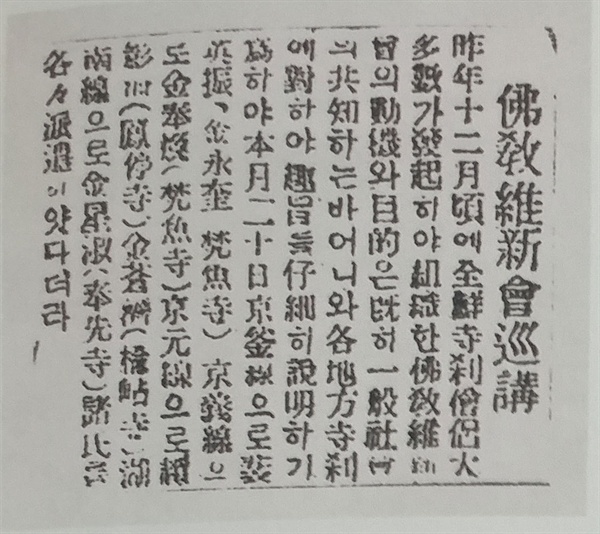 佛敎維新會巡講
昨年十二月頃에全鮮寺刹僧侶大
多數가發起하야組織한佛敎維新
會의動機와目的은旣히一般社會
의共知하는바어니와各地方寺刹
에對하야趣旨를仔細히說明하기
爲하야本月二十日京釜線으로
英振、金永奎(梵魚寺)京義線으
로金奉煥(梵魚寺)京元線으로
(寺)金(寺)湖
南線으로金星淑(奉先寺)諸氏를
各々派遣이얏다더라